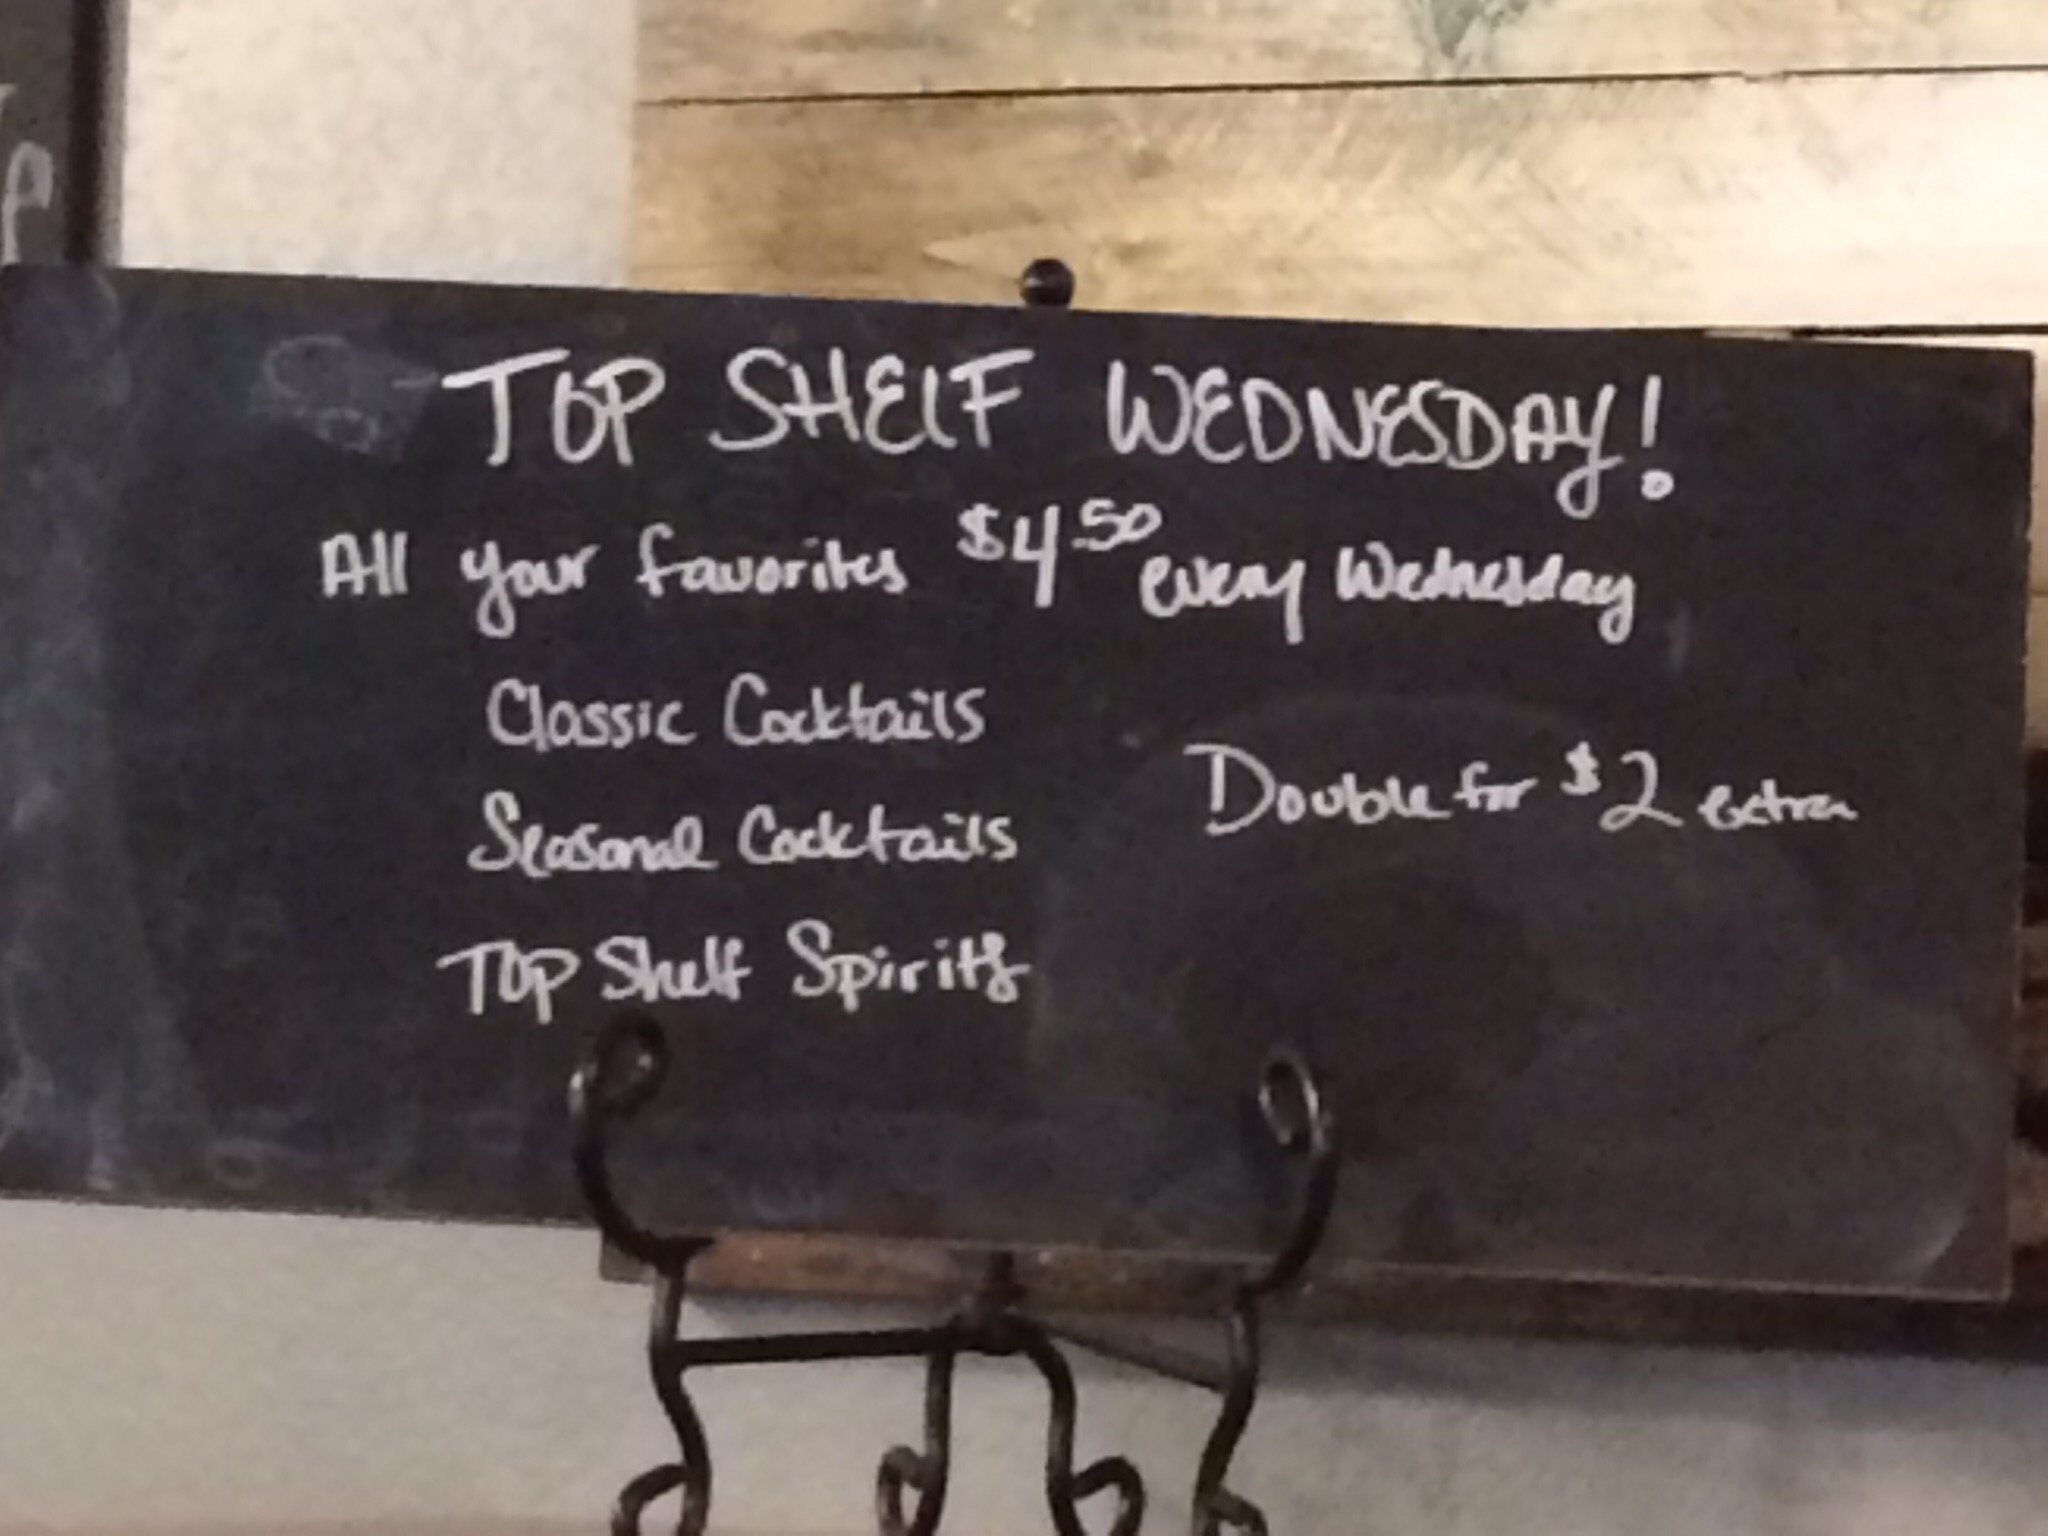 TOP SHELF WEDNESDAY!
All your favorites $4.50 every Wednesday
Classic Cocktails
Double for $2 extra
Seasonal Cocktails
Top Shelf Spirits